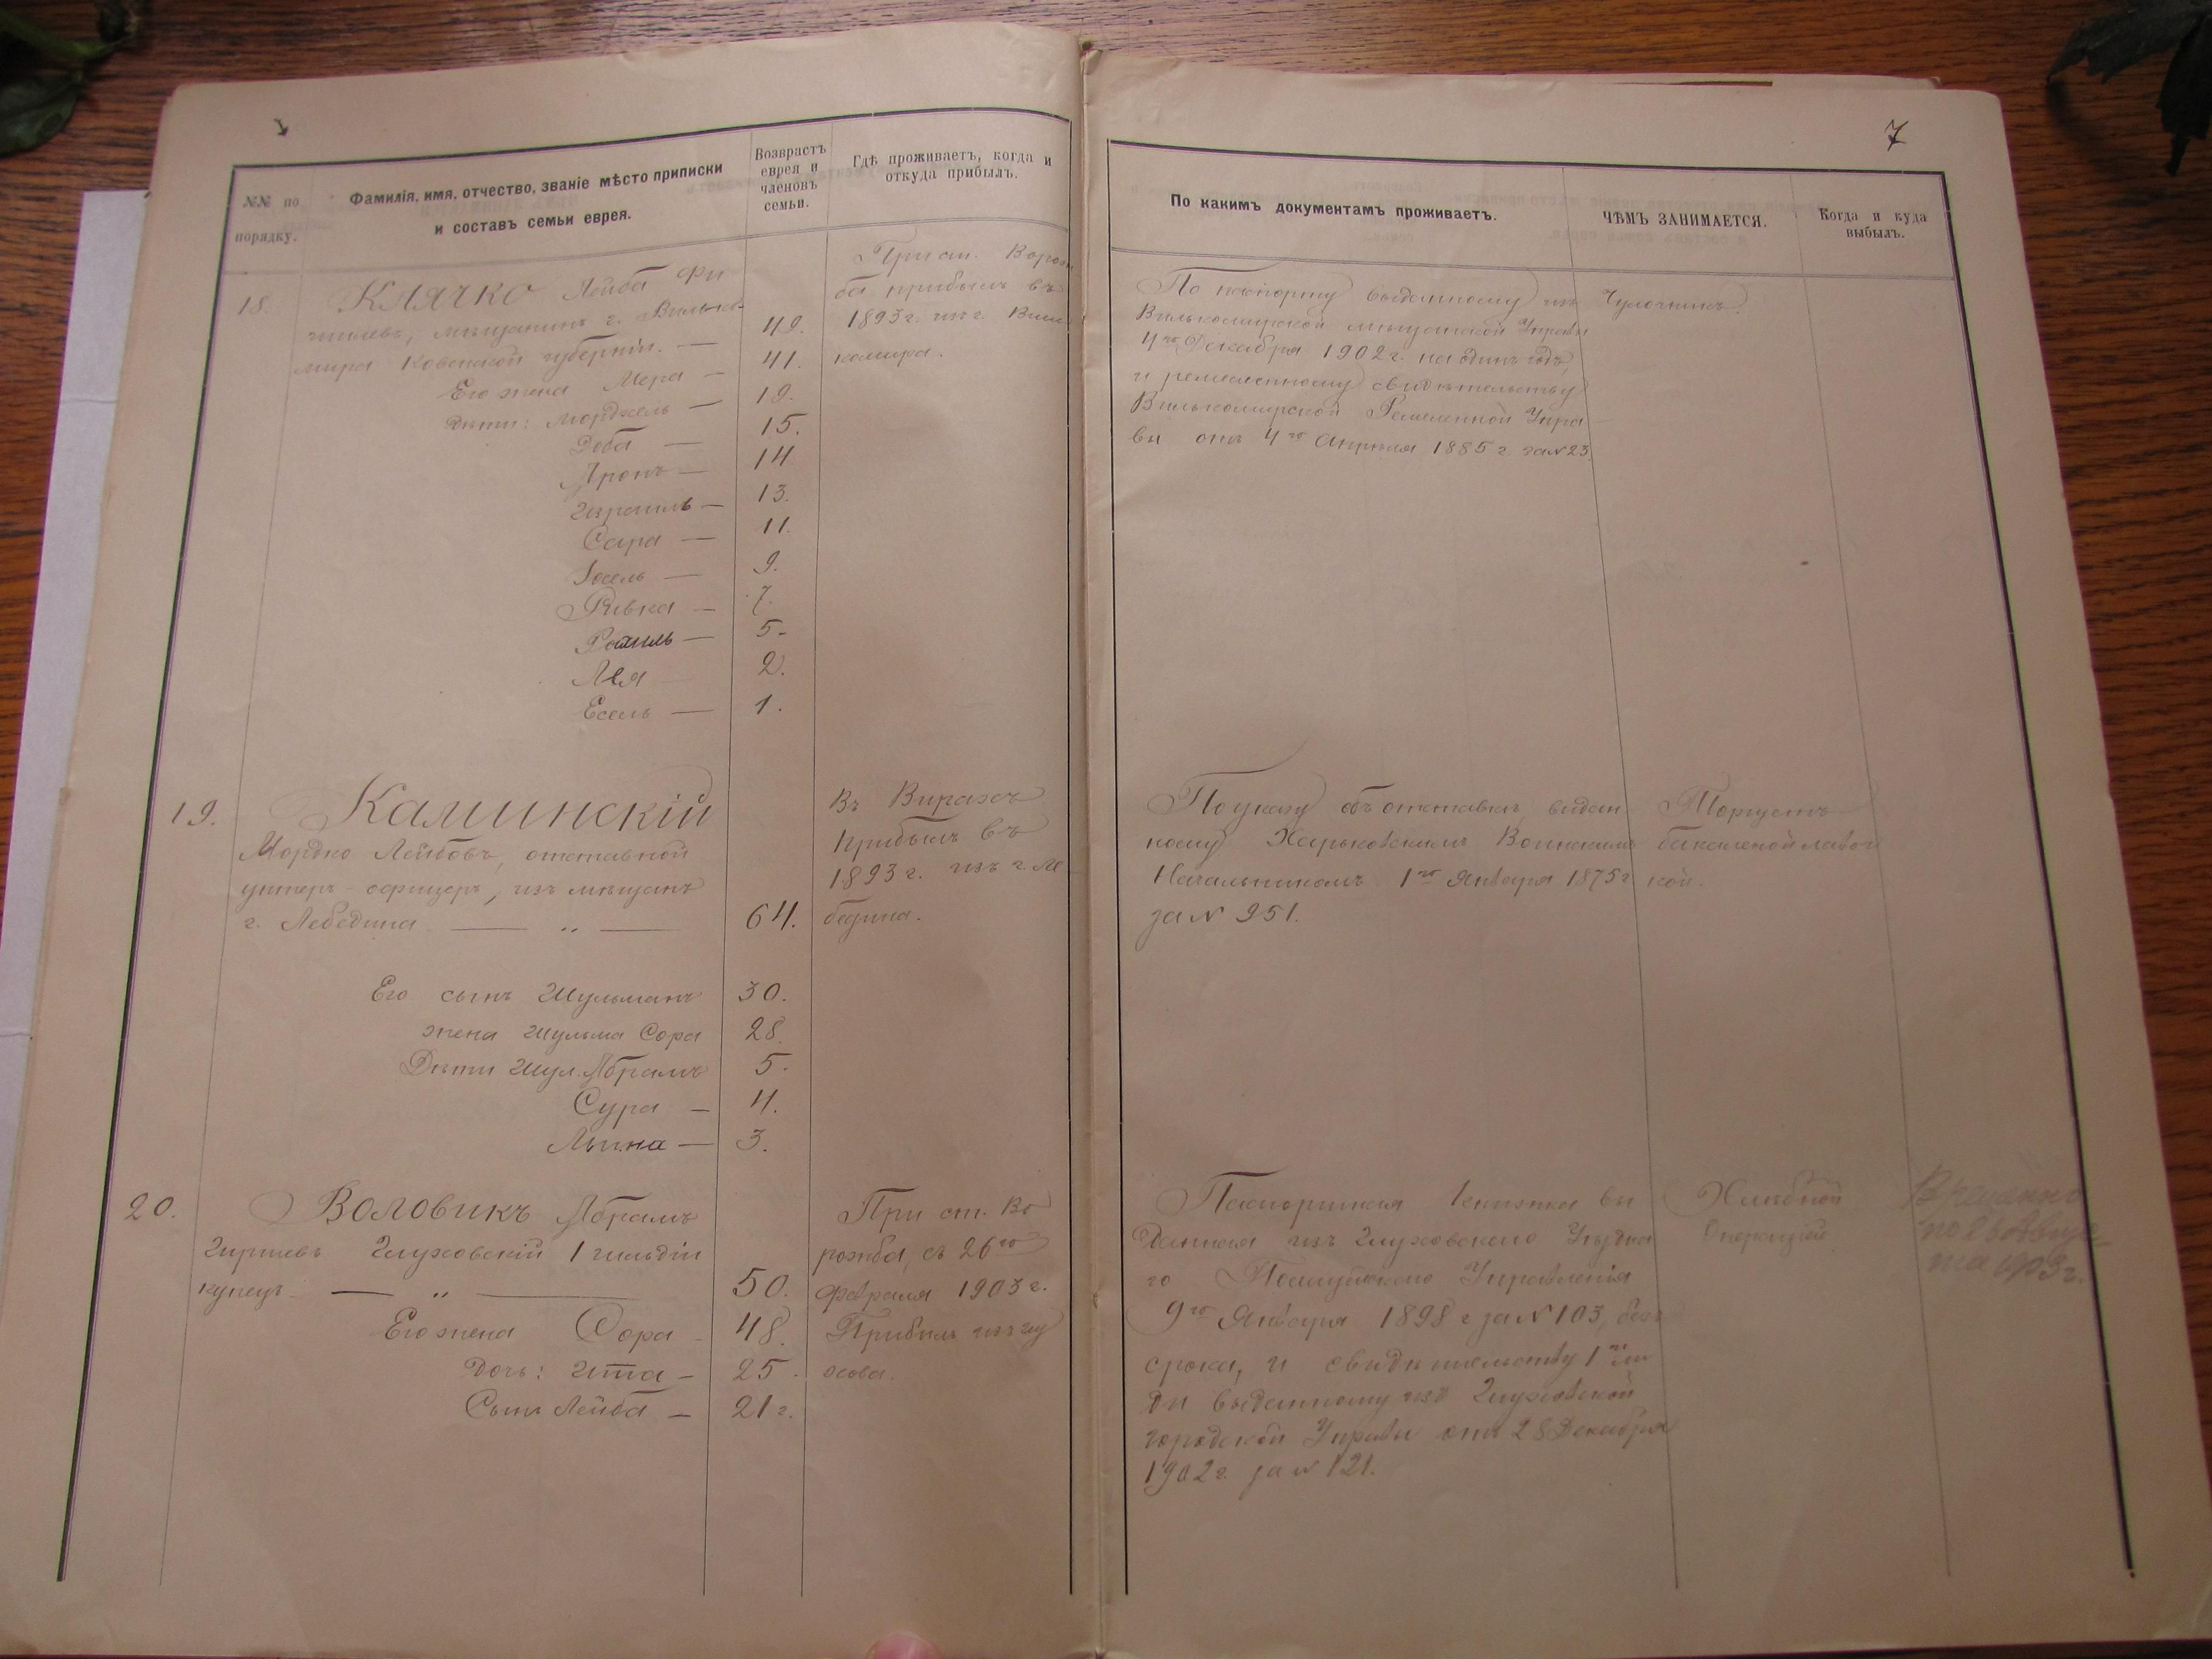 7
№№ по порядку.
Фамилія, имя, отчество, званіе мѣсто приписки и составъ семьи еврея.
Возврастъ еврея и членовъ семьи.
Гдѣ проживаетъ, когда и откуда прибылъ.
По какимъ документамъ проживаетъ.
ЧѢМЪ ЗАНИМАЕТСЯ.
Когда и куда выбылъ.
18.
Клячко Лейба
мѣщанинъ г. Вилько-
мира Ковенской губерніи. — 49.
Его жена Мера — 41.
Дѣти: Мордхель — 19.
Доба — 15.
Аронъ — 14
Израиль — 13.
Сара — 11.
Іосель — 9.
Ривка — 7.
Рахиль — 5-
Лея — 2.
Есель — 1.
При ст. Ворож-
ба прибылъ въ
1893 г. изъ г. Виль
комира.
По паспорту выданному изъ
Вилькомирской мѣщанской Управы
4го Декабря 1902 г. на одинъ годъ,
и ремесленному свидѣтельству
Вилькомирской Ремесленной Упра
вы отъ 4го Апрѣля 1885 г за № 23.
Чулочникъ.
19.
Каминскій
Мордко Лейбовъ, отставной
унтеръ-офицеръ, изъ мѣщанъ
г. Лебедина — „ — 64.
Его сынъ Шульманъ 30.
жена Шульма Сора 28.
Дѣти Шул. Абрамъ 5.
Сура — 4.
— 3.
Въ
прибылъ въ
1893 г. изъ г. Ле
бедина.
По указу объ отставкѣ, выдан
ному Харьковскимъ Воинскимъ
Начальникомъ 1го Января 1875 г
за № 951.
Торгуетъ
бакалейной лавоч
кой.
20.
Воловикъ Абрамъ
Гиршевъ Глуховскій 1 гильдіи
купецъ — „ — 50.
Его жена Сора 48.
Дочь: Ита — 25.
Сынъ Лейба — 21 г.
При ст. Во
рожба, съ 26го
февраля 1903 г.
Прибылъ изъ Глу
хова.
Паспортная книжка вы
данная изъ Глуховскаго Уѣздна
го Полицейскаго Управленія
9го Января 1898 г за № 103, безъ
срока, и свидѣтельству 1 гил
ди выданному изъ Глуховской
городской Управы отъ 28 Декабря
1902 г. за № 121.
Хлѣбной
Операціей
Временно
по
та 1903 г.